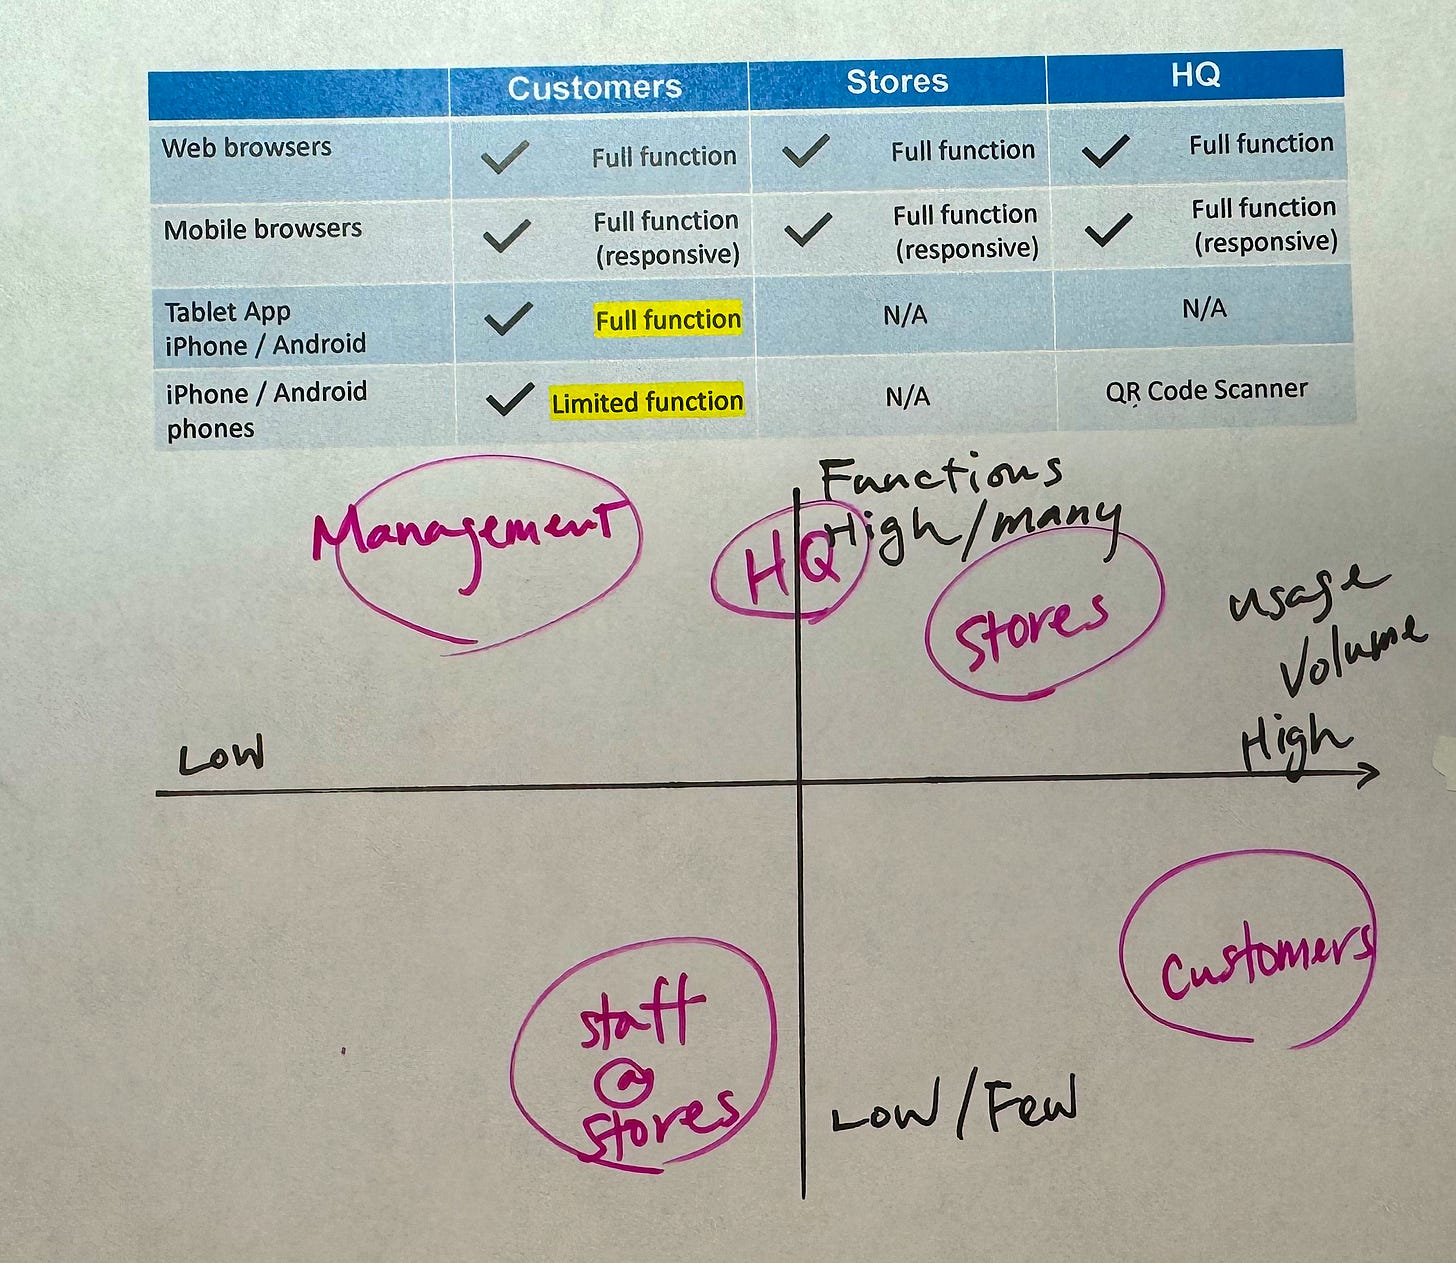 Customers Stores HQ
Web browsers Full function Full function Full function
Mobile browsers Full function Full function Full function
(responsive) (responsive) (responsive)
Tablet App Full function N/A N/A
iPhone / Android
iPhone / Android Limited function N/A QR Code Scanner
phones
Functions
High/many
Management
HQ
Stores
usage
Volume
High
Low
customers
staff
@
stores
Low/Few